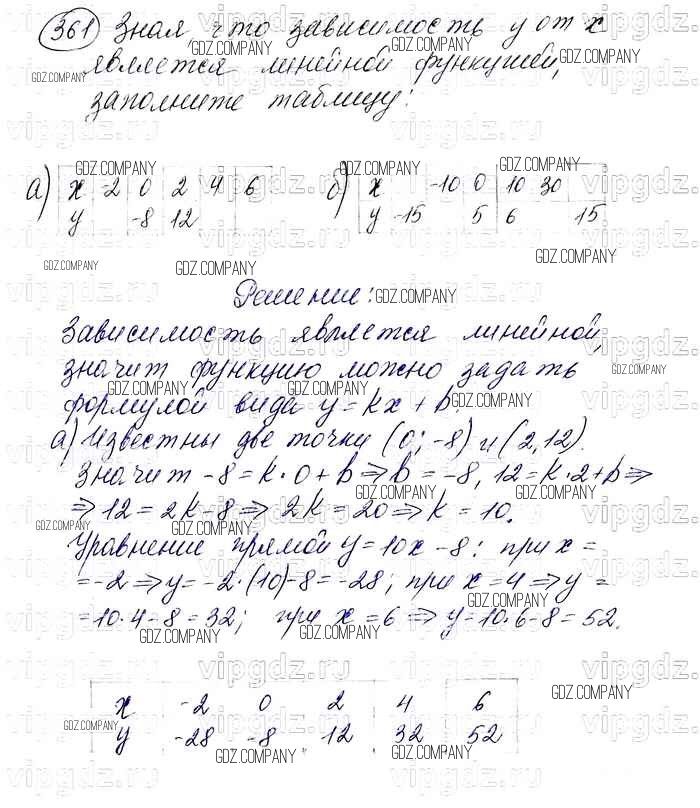 361 Зная что зависимость y от x
является линейной функцией,
заполните таблицу:
а) x -2 0 2 4 6
y -8 12
б) x -10 0 10 30
y -15 5 6 15
Решение:
Зависимость является линейной,
значит функцию можно задать
формулой вида y = kx + b.
а) Известны две точки (0; -8) и (2, 12).
Значит -8 = k · 0 + b ⇒ b = -8, 12 = k · 2 + b ⇒
⇒ 12 = 2k - 8 ⇒ 2k = 20 ⇒ k = 10.
Уравнение прямой y = 10x - 8: при x =
= -2 ⇒ y = -2 · (10) - 8 = -28; при x = 4 ⇒ y =
= 10 · 4 - 8 = 32; при x = 6 ⇒ y = 10 · 6 - 8 = 52.
x -2 0 2 4 6
y -28 -8 12 32 52
GDZ.COMPANY
vipgdz.ru